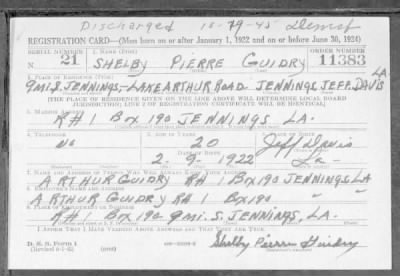 Discharged 10-29-45
REGISTRATION CARD—(Men born on or after January 1, 1922 and on or before June 30, 1924)
SERIAL NUMBER 1. NAME (Print) ORDER NUMBER
N 21 SHELBY PIERRE GUIDRY 11383
(First) (Middle) (Last)
2. PLACE OF RESIDENCE (Print)
9 MI. S. JENNINGS-LAKE ARTHUR ROAD JENNINGS JEFF. DAVIS LA.
[THE PLACE OF RESIDENCE GIVEN ON THE LINE ABOVE WILL DETERMINE LOCAL BOARD
JURISDICTION; LINE 2 OF REGISTRATION CERTIFICATE WILL BE IDENTICAL]
3. MAILING ADDRESS
R#1 Box 190 JENNINGS LA.
4. TELEPHONE 5. AGE IN YEARS 6. PLACE OF BIRTH
NO 20 Jeff Davis
DATE OF BIRTH
2 - 9 - 1922 La
7. NAME AND ADDRESS OF PERSON WHO WILL ALWAYS KNOW YOUR ADDRESS
ARTHUR GUIDRY R#1 Box 190 JENNINGS, LA
8. EMPLOYER'S NAME AND ADDRESS
ARTHUR GUIDRY R#1 Box 190 " "
9. PLACE OF EMPLOYMENT OR BUSINESS
R#1 Box 190 9 MI. S. JENNINGS, LA.
I AFFIRM THAT I HAVE VERIFIED ABOVE ANSWERS AND THAT THEY ARE TRUE.
D. S. S. Form 1
(over) Shelby Pierre Guidry